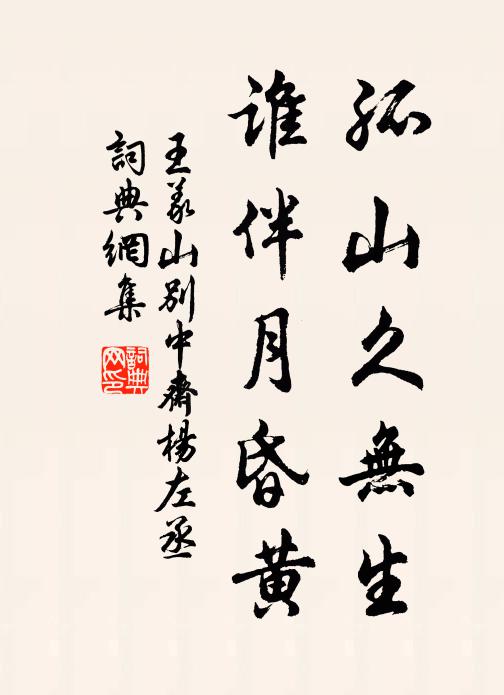 孤山久無生
誰伴月昏黄
王義山別中齋楊左丞
詞典網集
詞典
网印